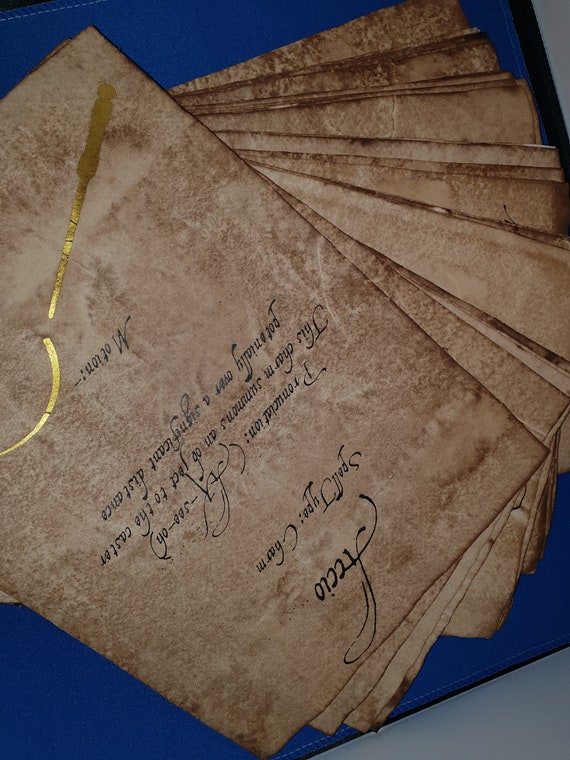 Accio
Spell Type: Charm
Pronuciation: (AK-see-oh)
This charm summons an object to the caster
potentially over a significant distance
Motion:-